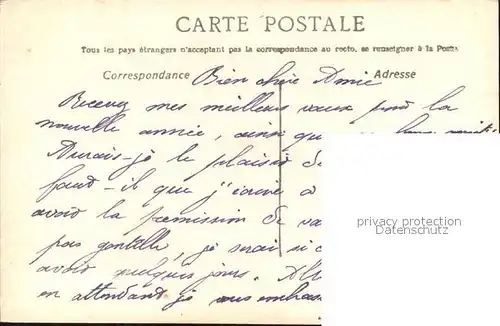 CARTE POSTALE
Tous les pays étrangers n'acceptant pas la correspondance au recto, se renseigner à la Poste
Correspondance
Adresse
Bien chère Amie
Recevez mes meilleurs vœux pour la
nouvelle année, ainsi que
Aurais-je le plaisir de
faut-il que j'écrive à
avoir la permission de
pas gentille, je serai si
avoir quelques jours.
en attendant je vous embrass
privacy protection
Datenschutz